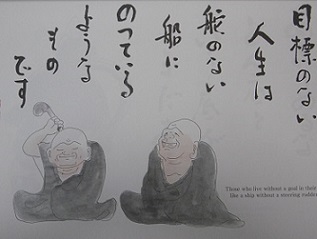 目標のない
人生は
舵のない
船に
のっている
ような
もの
です
Those who live without a goal in their
like a ship without a steering rudder